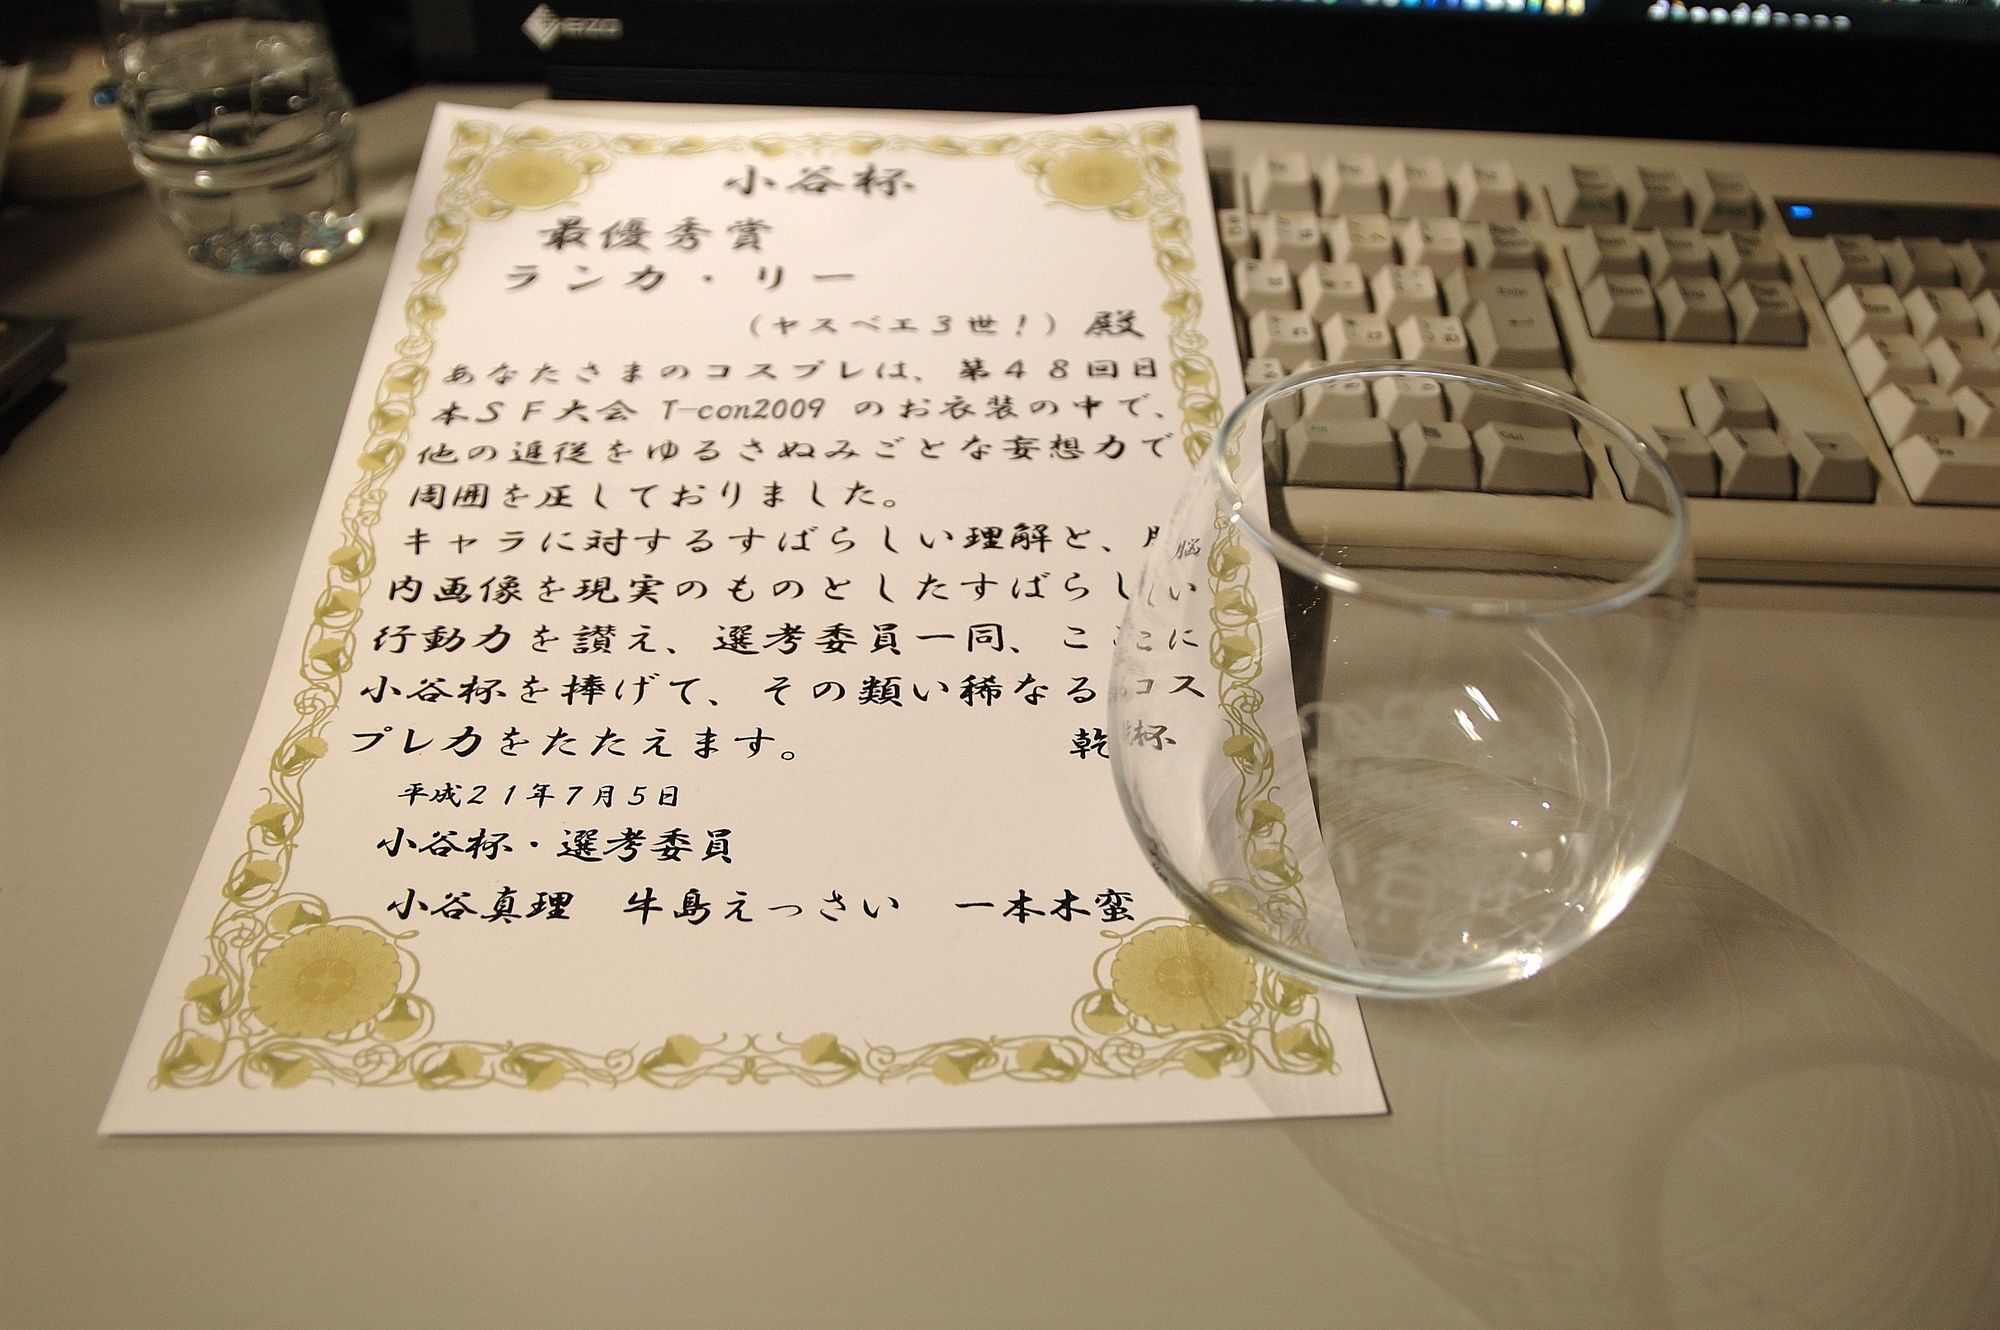 EIZO
小谷杯
最優秀賞
ランカ・リー
(ヤスベエ3世!) 殿
あなたさまのコスプレは、第48回日
本SF大会 T-con2009 のお衣装の中で、
他の追従をゆるさぬみごとな妄想力で
周囲を圧しておりました。
キャラに対するすばらしい理解と、脳
内画像を現実のものとしたすばらしい
行動力を讃え、選考委員一同、ここに
小谷杯を捧げて、その類い稀なるコス
プレ力をたたえます。 乾杯
平成21年7月5日
小谷杯・選考委員
小谷真理 牛島えっさい 一本木蛮